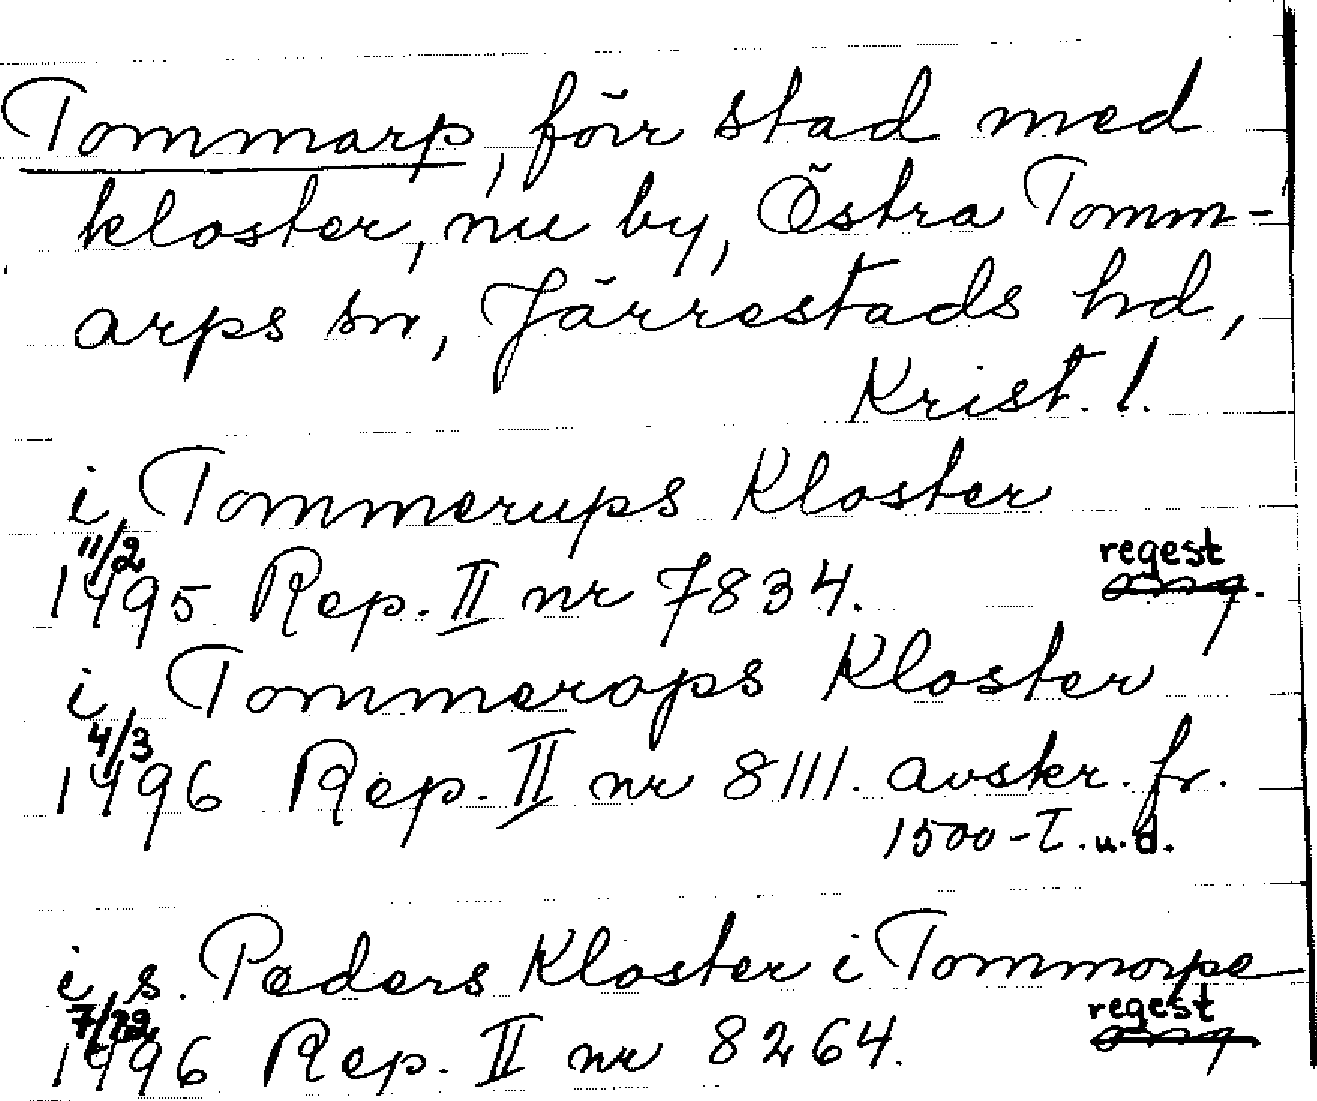 Tommarp, förr stad med
kloster, nu by, Östra Tomm-
arps sn, Järrestads hd,
Krist. l.
i Tommerups Kloster
11/2 regest
1495 Rep. II nr 7834.
i Tommerops Kloster
4/3
1496 Rep. II nr 8111. avskr. fr.
1500-T. u.d.
i s. Peders Kloster i Tommorpe
regest
1496 Rep. II nr 8264.